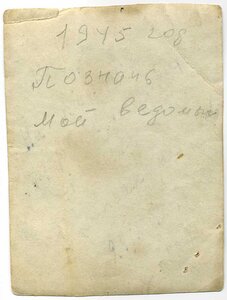 1945 год
Познань
Мой ведомый